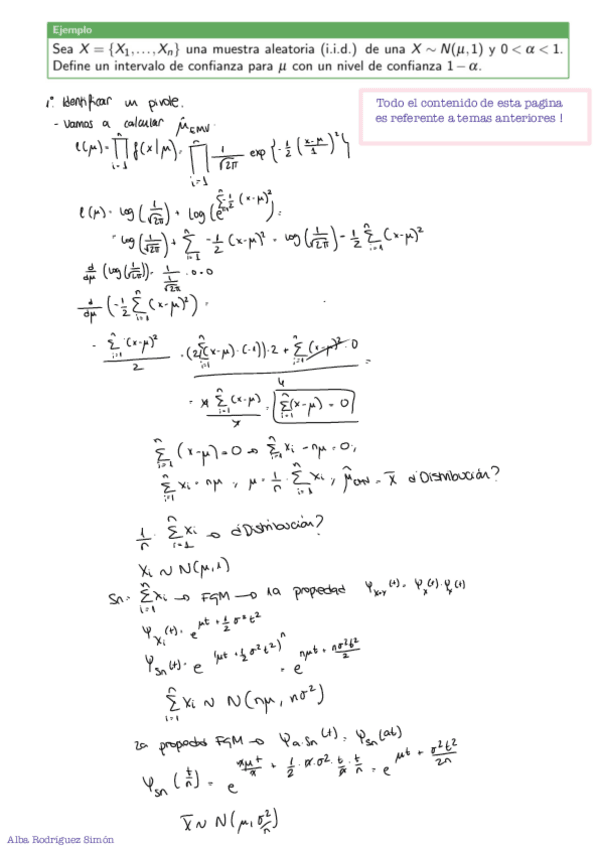 Ejemplo
Sea X = {X₁,...,Xₙ} una muestra aleatoria (i.i.d.) de una X ∼ N(μ,1) y 0 < α < 1.
Define un intervalo de confianza para μ con un nivel de confianza 1−α.
1. Identificar un pivote.
Todo el contenido de esta pagina
es referente a temas anteriores !
- Vamos a calcular μ̂_EMV
ℓ(μ) = ∏_{i=1}^{n} f(x|μ) = ∏_{i=1}^{n} 1/√2π exp{-1/2 ((x-μ)/1)²}
ℓ(μ) = log(1/√2π) + log(e^{∑ -1/2 (x-μ)²}) =
= log(1/√2π) + ∑_{i=1}^{n} -1/2 (x-μ)² = log(1/√2π) - 1/2 ∑_{i=1}^{n} (x-μ)²
d/dμ (log(1/√2π)) = 1/(1/√2π) · 0 = 0
d/dμ (-1/2 ∑_{i=1}^{n} (x-μ)²) =
- ∑_{i=1}^{n} (x-μ)² / 2 · (2(∑_{i=1}^{n} (x-μ) · (-1)) · 2 + ∑_{i=1}^{n} (x-μ)² · 0 / 4 =
= 4 ∑_{i=1}^{n} (x-μ) / 4 = ∑_{i=1}^{n} (x-μ) = 0
∑_{i=1}^{n} (x-μ) = 0 → ∑_{i=1}^{n} xi - nμ = 0;
∑_{i=1}^{n} xi = nμ ; μ = 1/n · ∑_{i=1}^{n} xi ; μ̂ = x̄ ¿Distribución?
1/n · ∑_{i=1}^{n} xi → ¿Distribución?
Xi ∼ N(μ,1)
Sn = ∑_{i=1}^{n} xi → FGM → 1a propiedad φ_{x+y}(t) = φ_x(t) · φ_y(t)
φ_{xi}(t) = e^{μt + 1/2 σ²t²}
φ_{Sn}(t) = e^{(μt + 1/2 σ²t²)^n} = e^{nμt + nσ²t²/2}
∑_{i=1}^{n} xi ∼ N(nμ, nσ²)
2a propiedad FGM → φ_{a·Sn}(t) = φ_{Sn}(at)
φ_{Sn}(t/n) = e^{nμt/n + 1/2 · n · σ² · t/n · t/n} = e^{μt + σ²t²/2n}
X̄ ∼ N(μ, σ²/n)
Alba Rodríguez Simón